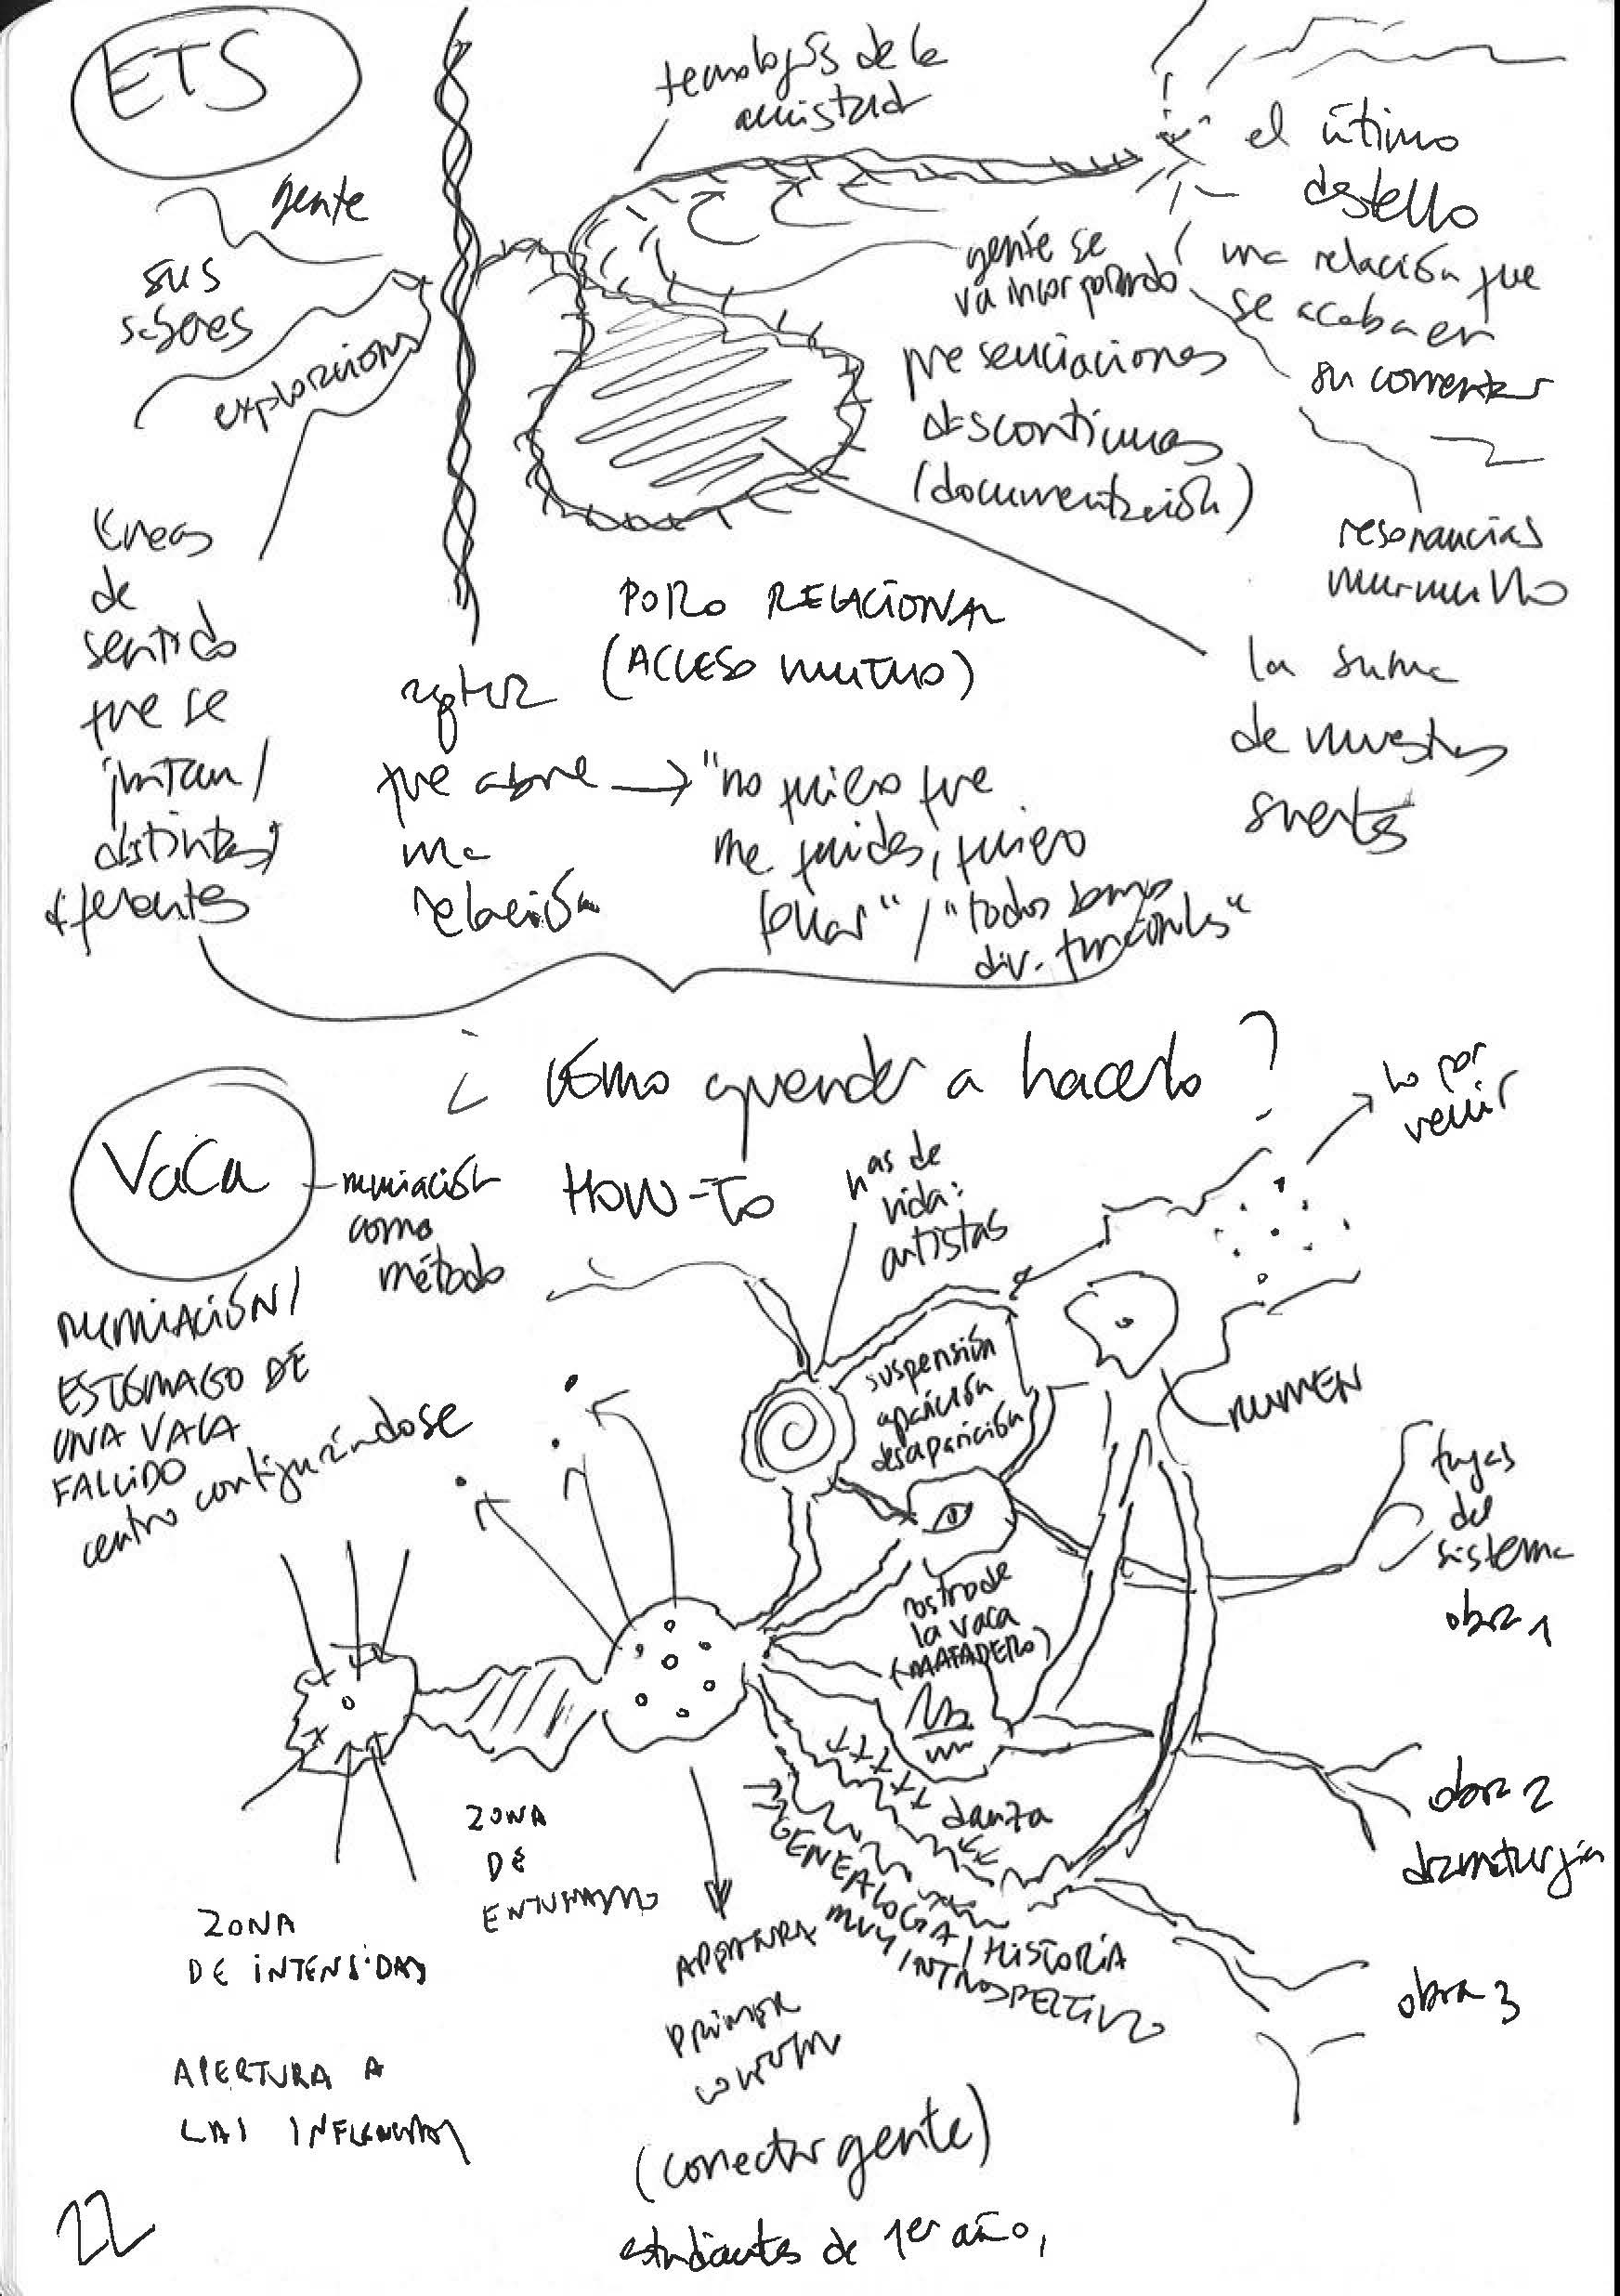 ETS
gente
sus
saberes
exploraciones
tecnologías de la
amistad
el útimo
destello
gente se
va incorporando
una relación que
se acaba en
su comentar
presenciaciones
descontinuas
(documentación)
resonancias
murmullo
líneas
de
sentido
que se
juntan/
distintas/
diferentes
PORO RELACIONAL
(ACCESO MUTUO)
la suma
de nuestras
suertes
que abre → "no quiero que
una
relación
me cuides, quiero
follar" / "todos somos
div. funcionales"
¿cómo aprender a hacerlo?
HOW-TO
VaCa
rumiación
como
método
RUMIACIÓN/
ESTÓMAGO DE
UNA VACA
FALLIDO
centro configurándose
has de
vida:
artistas
lo por
venir
suspensión
aparición
desaparición
RUMEN
fugas
del
sistema
obra 1
rostro de
la vaca
(MATADERO)
danza
GENEALOGIA / HISTORIA
MUY INTROSPECTIVO
obra 2
dramaturgia
obra 3
ZONA
DE INTENSIDAD
ZONA
DE
APERTURA A
LAS INFLUENCIAS
APERTURA
PRIMER
(conectar gente)
estudiantes de 1er año,
22